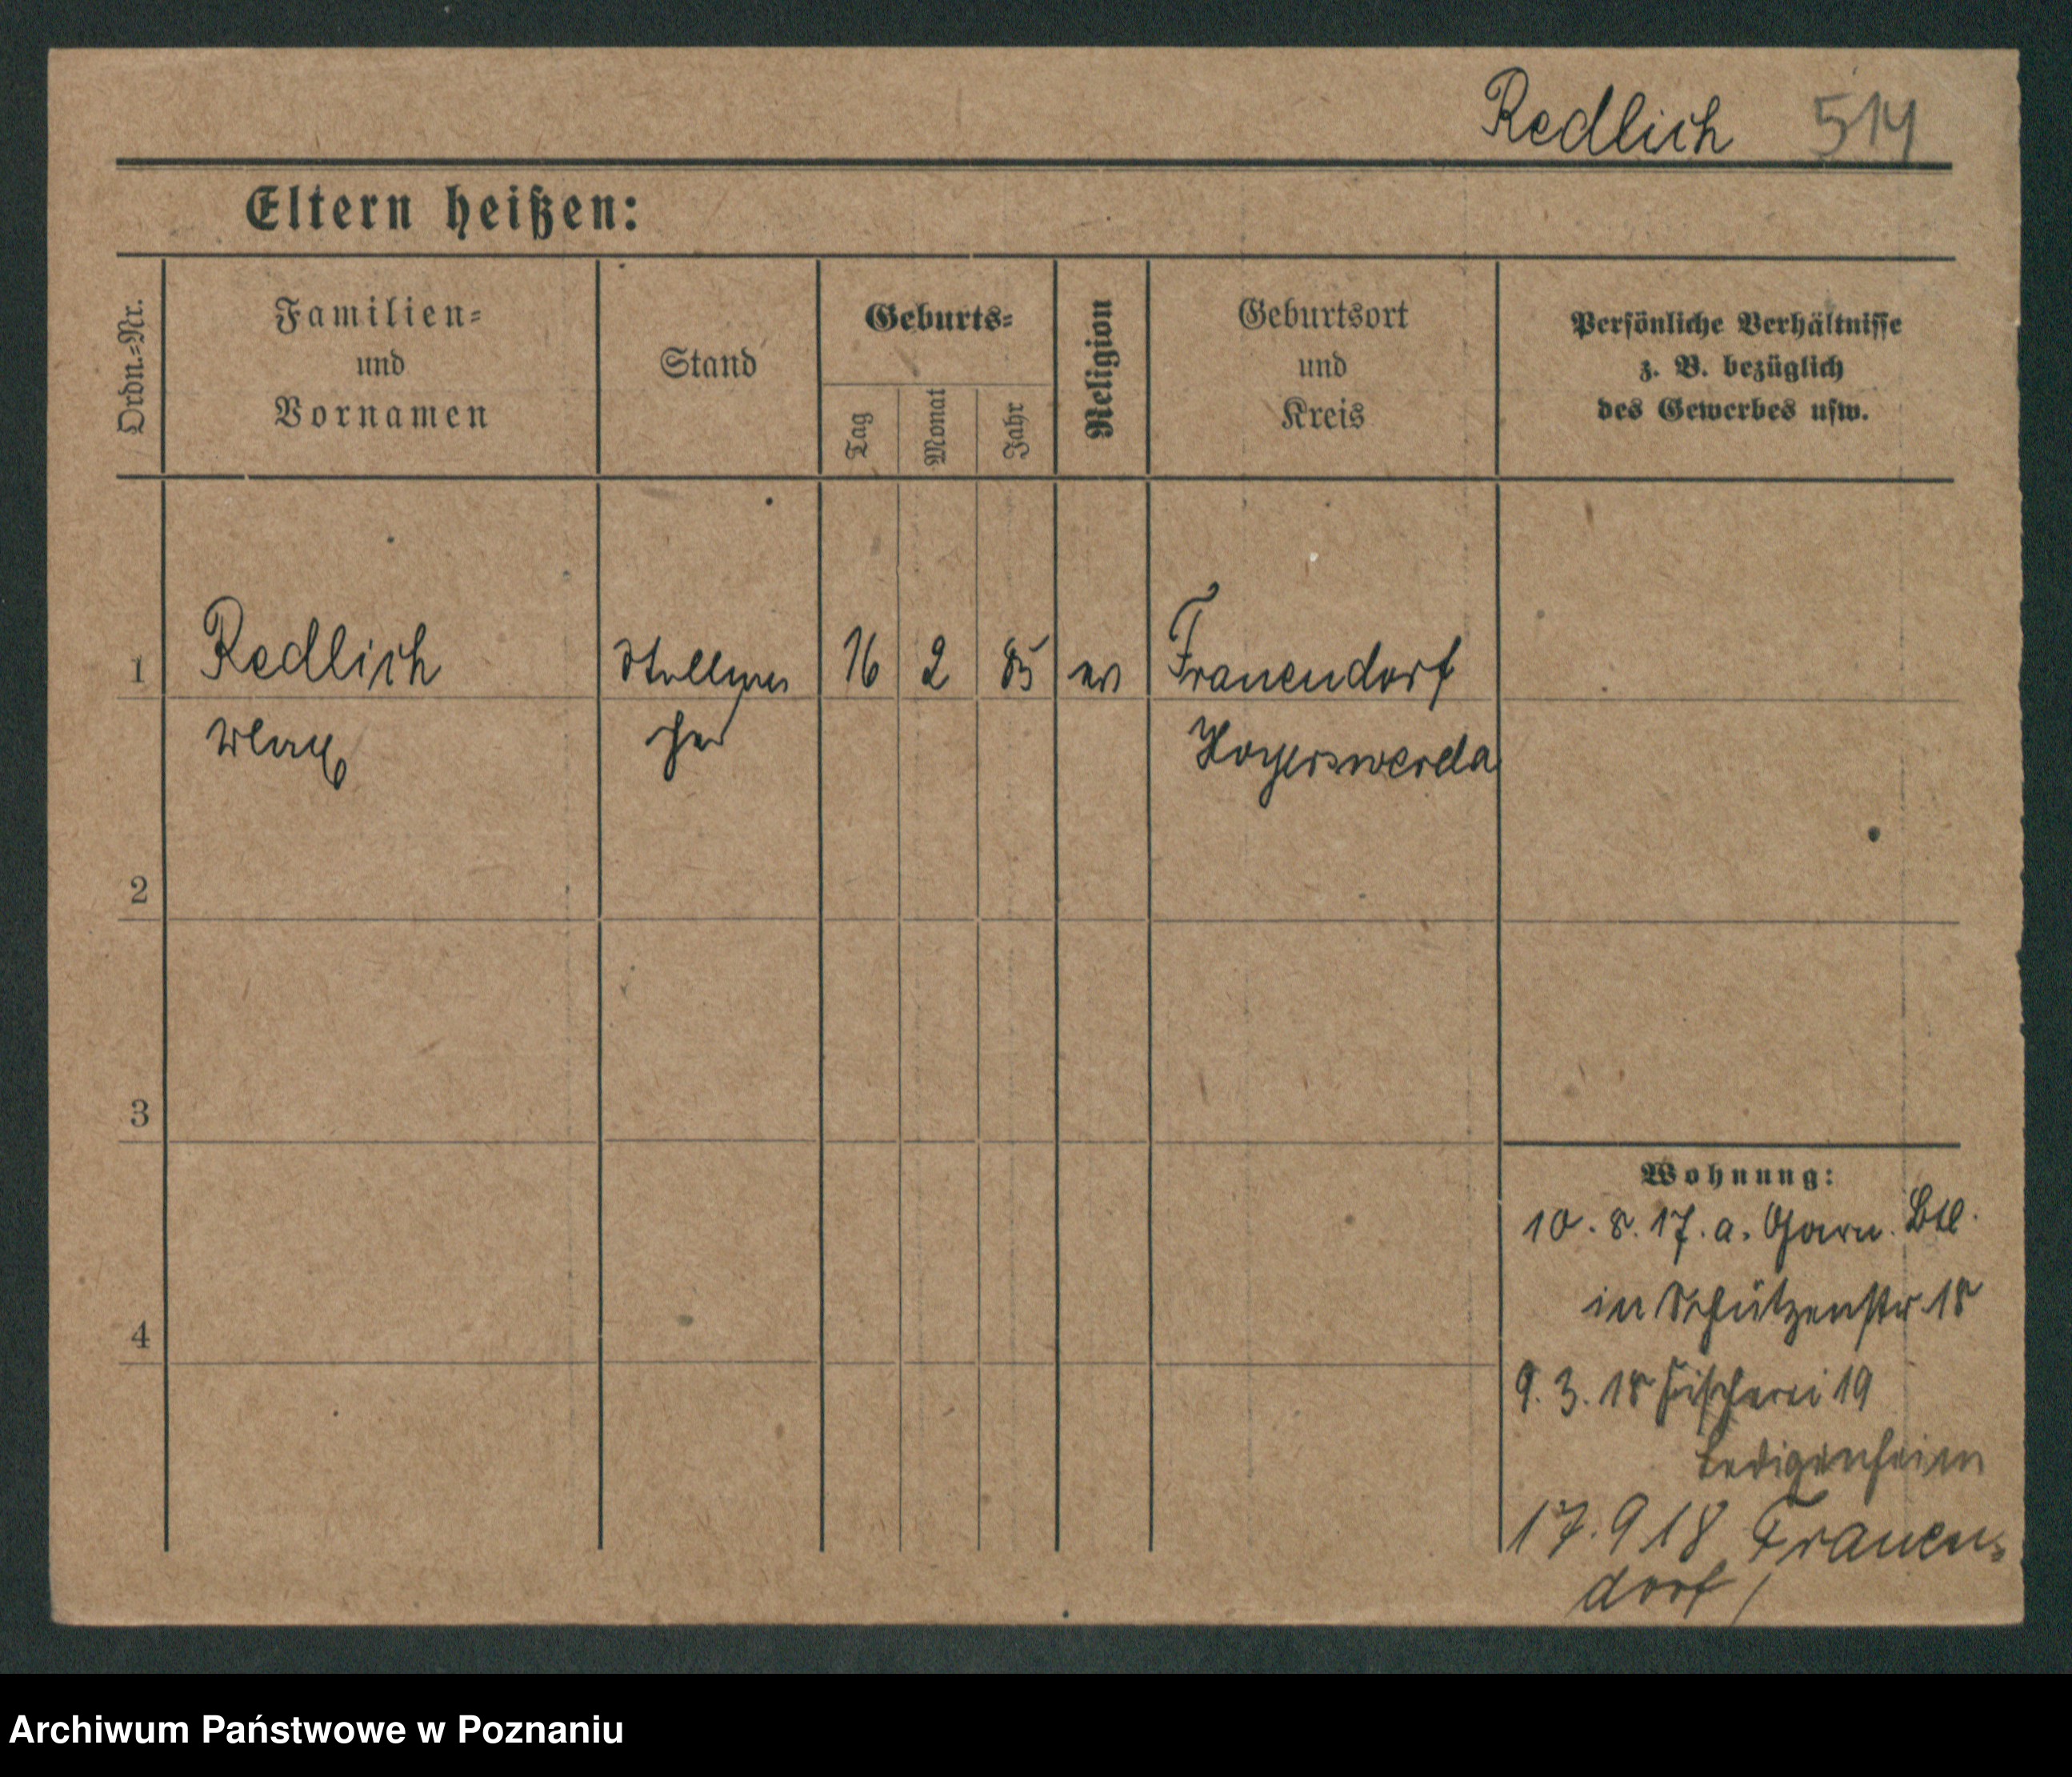 Redlich 514
Eltern heißen:
Ordn.-Nr.
Familien-
und
Vornamen
Stand
Geburts-
Tag
Monat
Jahr
Religion
Geburtsort
und
Kreis
Persönliche Verhältnisse
z. B. bezüglich
des Gewerbes usw.
1 Redlich Stellma 16 2 85 ev Frauendorf
Max cher Hoyerswerda
2
3
4
Wohnung:
10. 8. 17. a. Garn. Btl.
in Schützenstr. 18
9. 3. 18 Fischerei 19
Ledigenheim
17. 9 18 Frauen-
dorf /
Archiwum Państwowe w Poznaniu